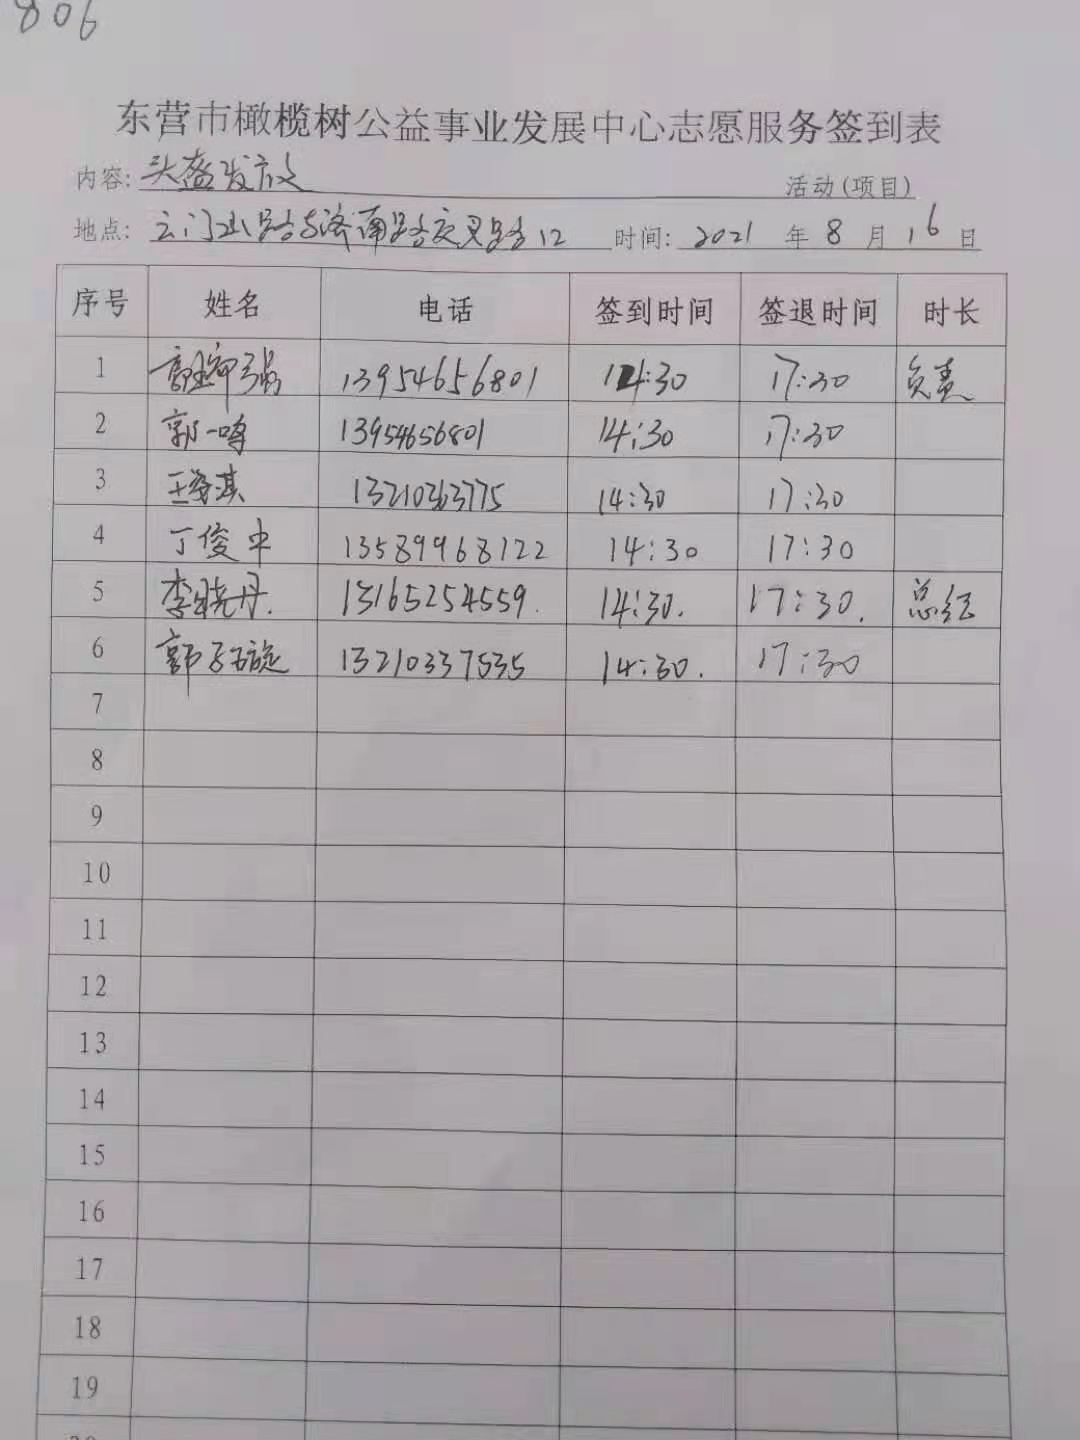 806
东营市橄榄树公益事业发展中心志愿服务签到表
内容: 头盔发放 活动(项目)
地点: 云门山路与济南路交叉路口 时间: 2021 年 8 月 16 日
序号 姓名 电话 签到时间 签退时间 时长
1 13954656801 14:30 17:30 负责
2 郭一鸣 13954656801 14:30 17:30
3 13210263775 14:30 17:30
4 丁俊中 13589968122 14:30 17:30
5 李晓丹. 13165254559. 14:30. 17:30. 总结
6 郭子旋 13210337535 14:30. 17:30
7
8
9
10
11
12
13
14
15
16
17
18
19